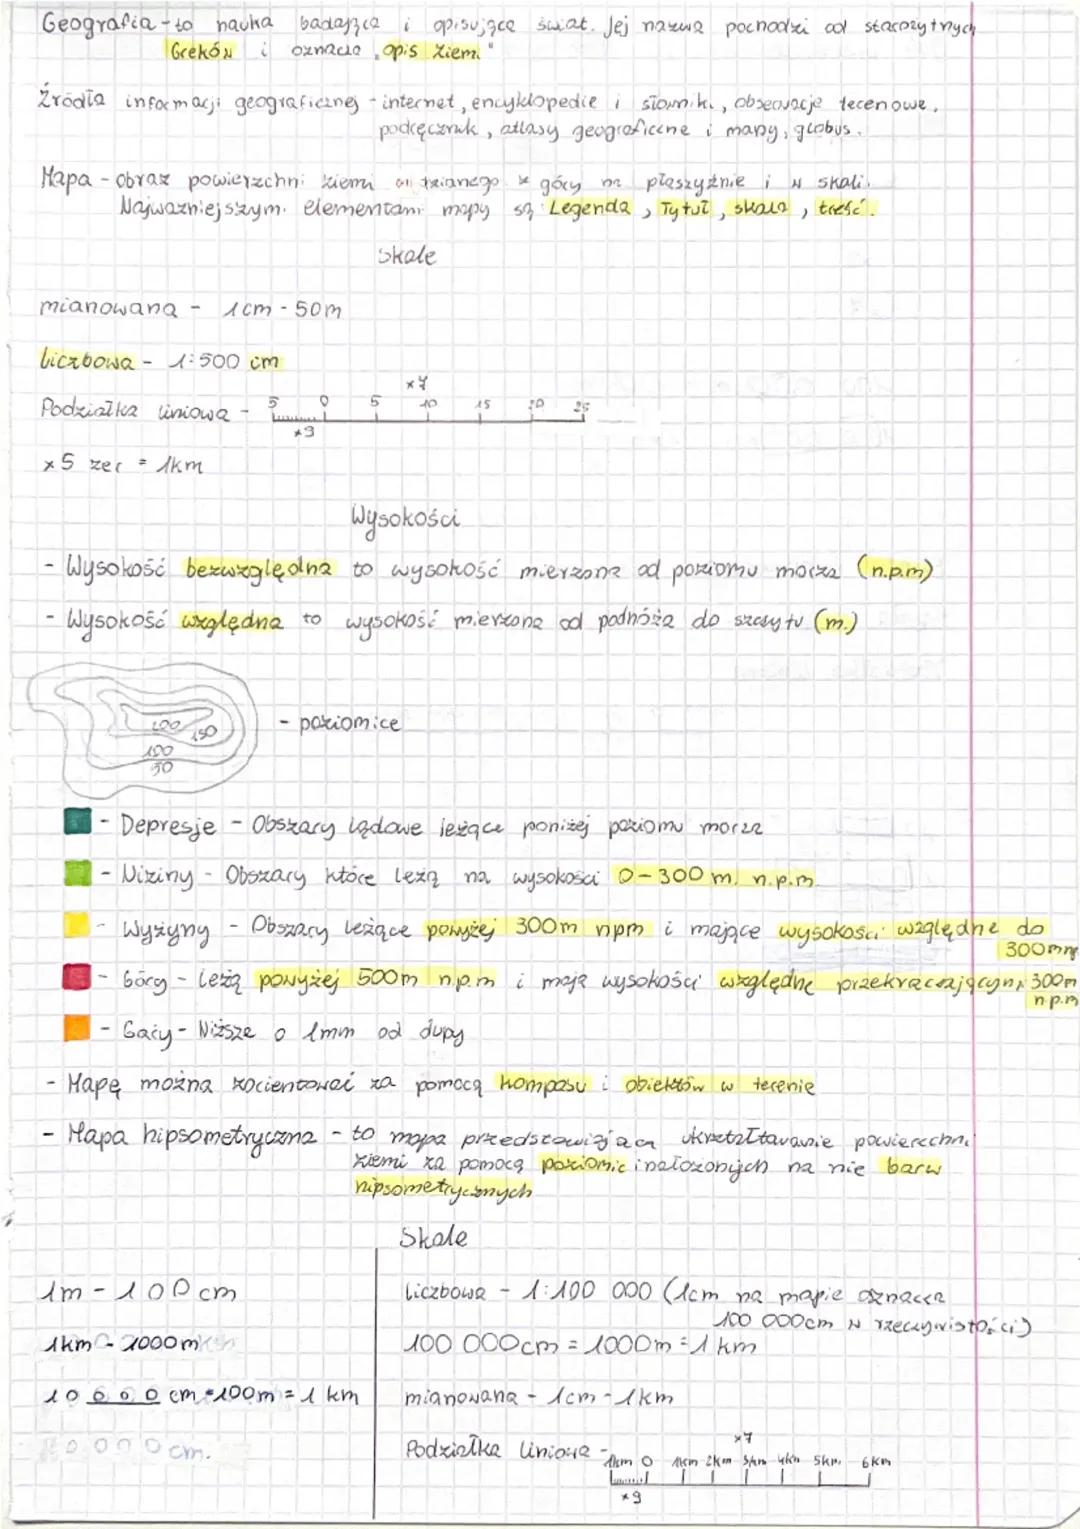 Geografia - to nauka badająca i opisująca świat. Jej nazwa pochodzi od starożytnych
Greków i oznacza „opis ziemi"
Źródła informacji geograficznej - internet, encyklopedie i słowniki, obserwacje terenowe,
podręcznik, atlasy geograficzne i mapy, globus.
Mapa - obraz powierzchni ziemi widzianego z góry na płaszyźnie i w skali.
Najważniejszymi elementami mapy są: Legenda, Tytuł, skala, treść.
Skale
mianowana - 1cm - 50m
liczbowa - 1:500 cm
x7
Podziałka liniowa - 5 0 5 10 15 20 25
x9
x5 = 1km
Wysokości
- Wysokość bezwzględna to wysokość mierzona od poziomu morza (n.p.m)
- Wysokość względna to wysokość mierzona od podnóża do szczytu (m.)
200 150 - poziomice
100
50
- Depresje - Obszary lądowe leżące poniżej poziomu morza
- Niziny - Obszary które leżą na wysokości 0-300 m. n.p.m.
- Wyżyny - Obszary leżące powyżej 300m npm i mające wysokości względne do
300m
- Góry - leżą powyżej 500m n.p.m i mają wysokości względne przekraczającymi 300m
n.p.m
- Gacy - Niższe o 1mm od dupy
- Mapę można zorientować za pomocą kompasu i obiektów w terenie
- Mapa hipsometryczna - to mapa przedstawiająca ukształtowanie powierzchni
ziemi za pomocą poziomic i nałożonych na nie barw
hipsometrycznych
Skale
1m - 100cm
1km - 1000m
10 000 cm = 100m = 1 km
10 000 cm.
liczbowa - 1:100 000 (1cm na mapie oznacza
100 000cm w rzeczywistości)
100 000cm = 1000m = 1 km
mianowana - 1cm - 1km
x7
Podziałka liniowa - 1km 0 1km 2km 3km 4km 5km 6km
x9